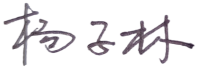 杨子林